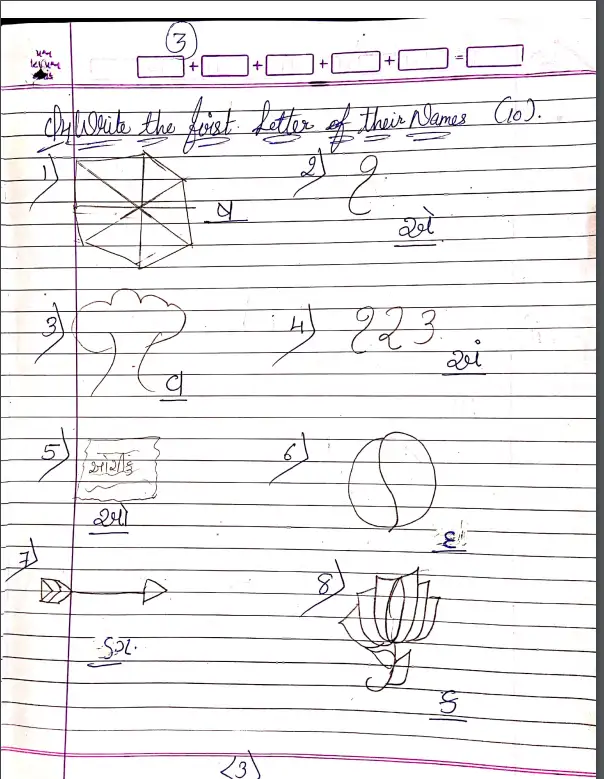 3
+ + + + =
Q4 Write the first Letter of their Names (10).
1) ષ
2) ઐ
3) વ
4) 223 અં
5) ઓશીકું
ઓ
6) દ
7) ક્ષ
8) ક
<3>